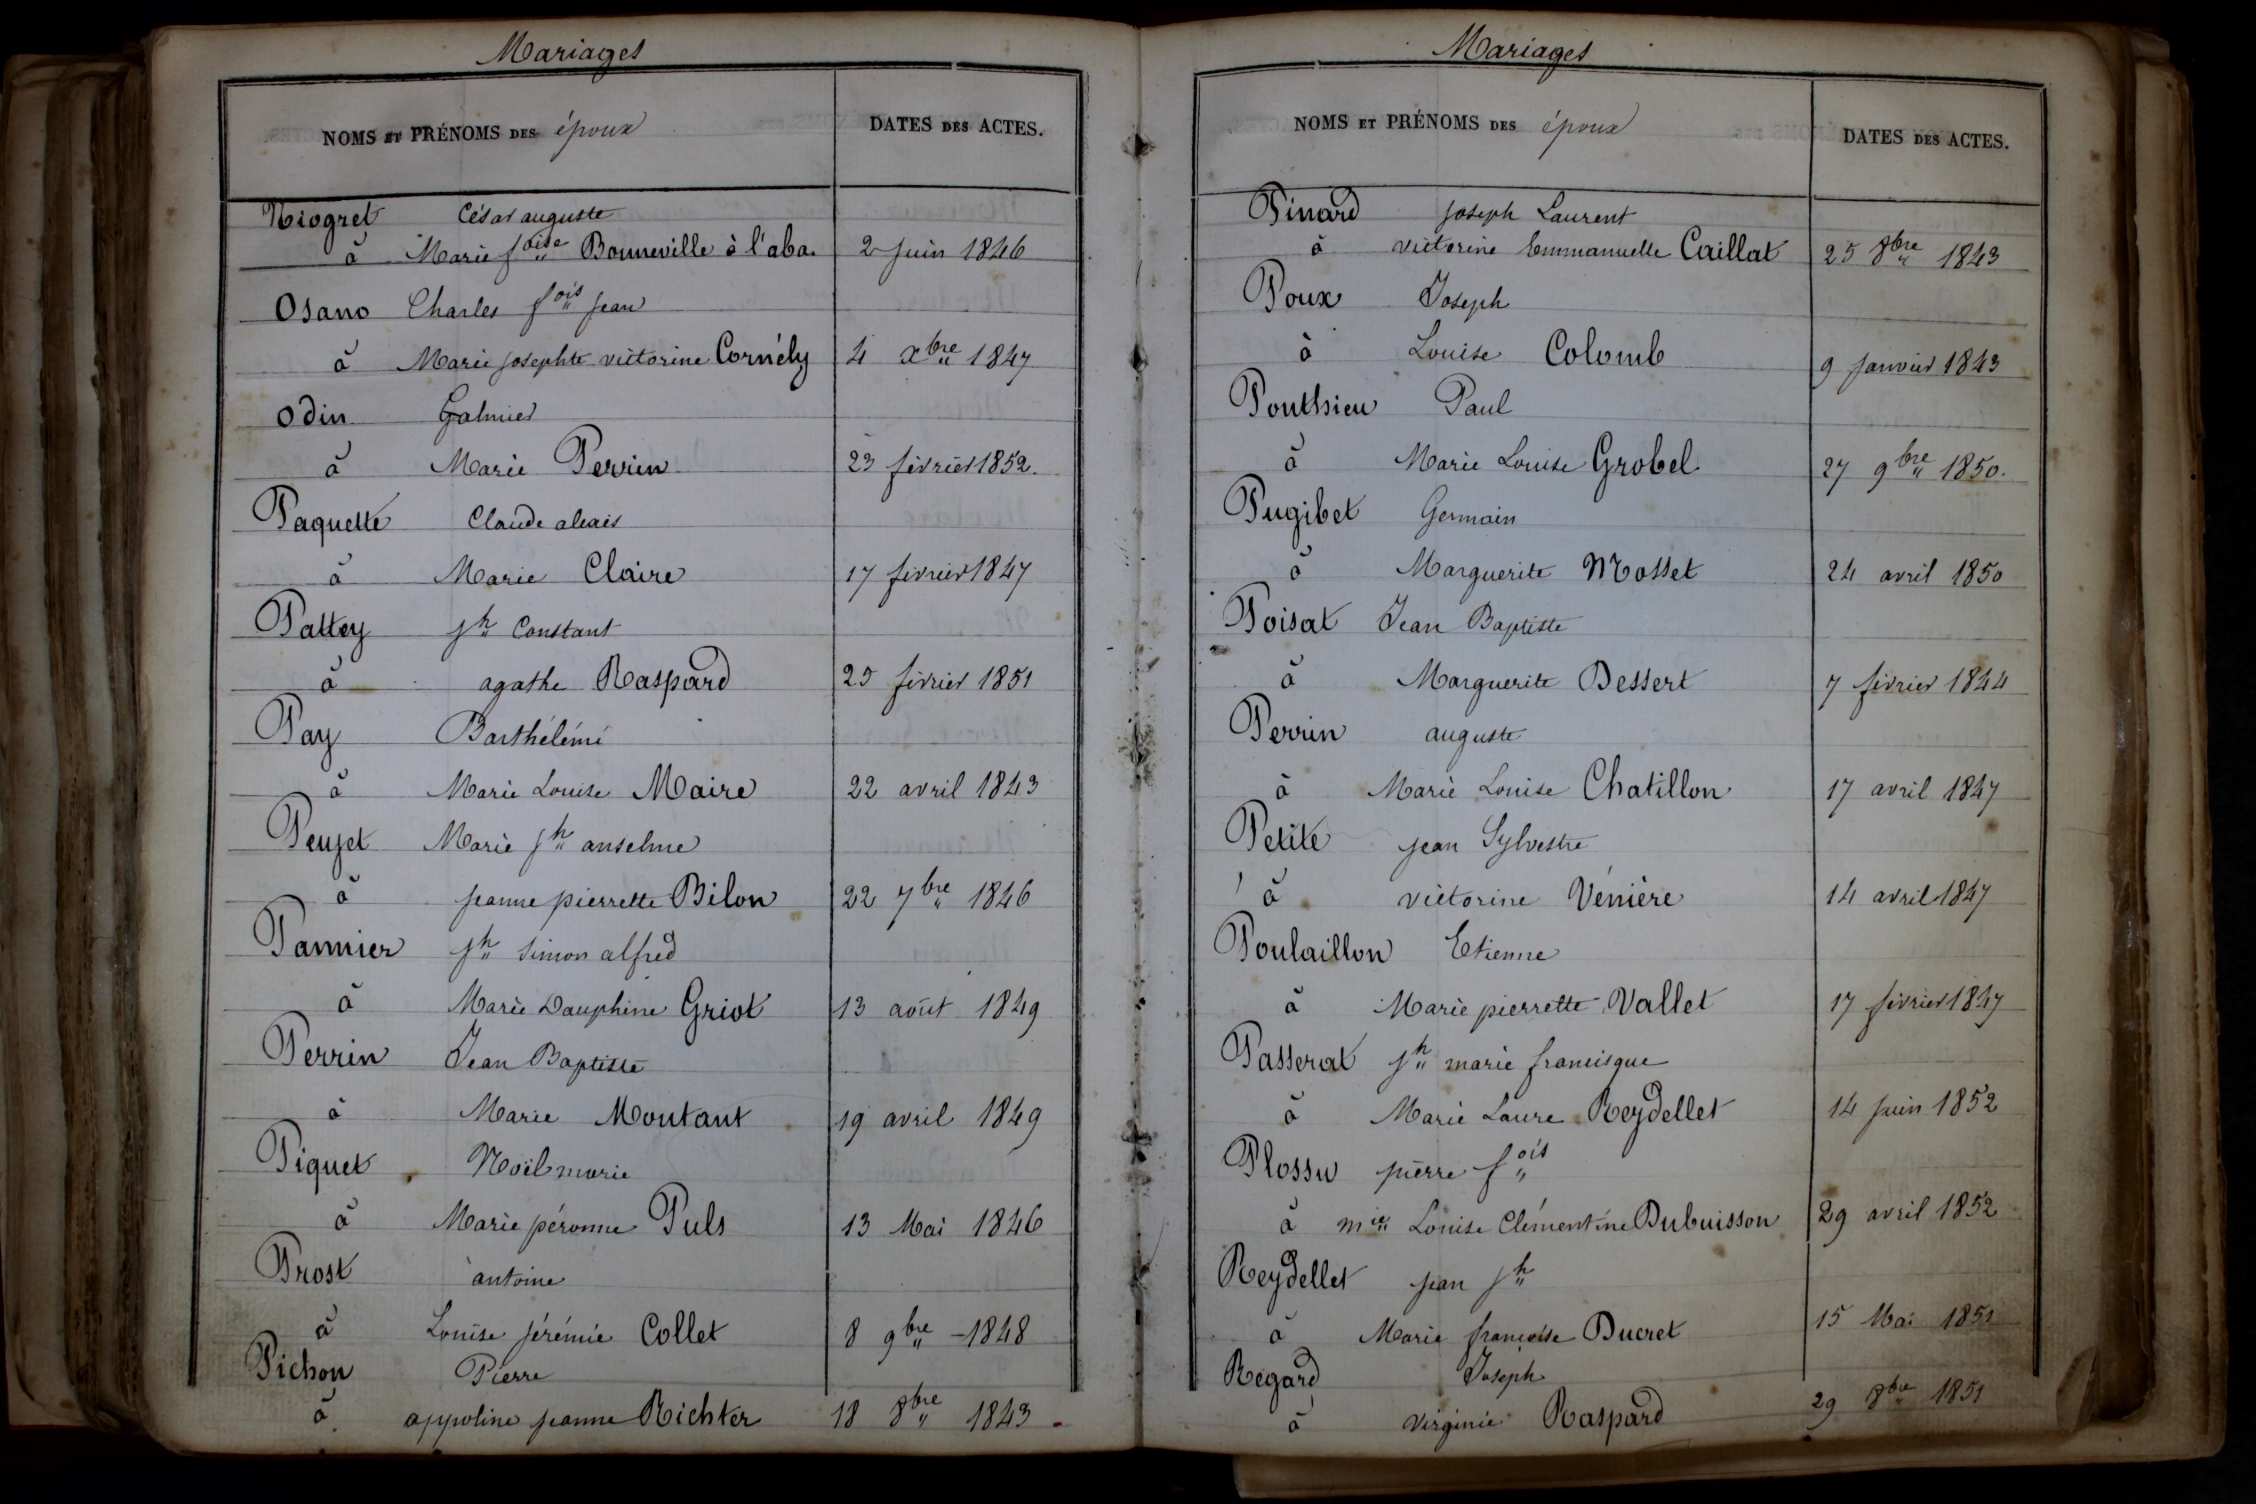 Mariages
NOMS ET PRÉNOMS DES époux
DATES DES ACTES.
Niogret César auguste
à Marie foise Bonneville à l'aba. 2 juin 1846
Osano Charles fois jean
à Marie josephte victorine Cornély 4 xbre 1847
Odin Galmier
à Marie Perrin 23 février 1852.
Paquette Claude alexis
à Marie Claire 17 février 1847
Pattey jh Constant
à agathe Raspard 25 février 1851
Pay Barthélémi
à Marie Louise Maire 22 avril 1843
Peujet Marie jh anselme
à jeanne pierrette Bilon 22 7bre 1846
Pannier jh simon alfred
à Marie Dauphine Griot 13 août 1849
Perrin Jean Baptiste
à Marie Montant 19 avril 1849
Piquet Noël marie
à Marie péronne Puls 13 Mai 1846
Prost antoine
à Louise jérémie Collet 8 9bre 1848
Pichon Pierre
à appoline jeanne Richter 18 8bre 1843
Mariages
NOMS ET PRÉNOMS DES époux
DATES DES ACTES.
Pinard joseph Laurent
à victorine Emmanuelle Caillat 25 8bre 1843
Poux Joseph
à Louise Colomb 9 janvier 1843
Ponthieu Paul
à Marie Louise Grobel 27 9bre 1850.
Pugibet Germain
à Marguerite Mosset 24 avril 1850
Poisat Jean Baptiste
à Marguerite Dessert 7 février 1844
Perrin auguste
à Marie Louise Chatillon 17 avril 1847
Petite jean Sylvestre
à victorine Vénière 14 avril 1847
Poulaillon Etienne
à Marie pierrette Vallet 17 février 1847
Passerat jh marie francisque
à Marie Laure Reydellet 14 juin 1852
Plossu pierre fois
à mie Louise Clémentine Dubuisson 29 avril 1852
Reydellet jean jh
à Marie françoise Ducret 15 Mai 1851
Regard Joseph
à virginie Raspard 29 8bre 1851